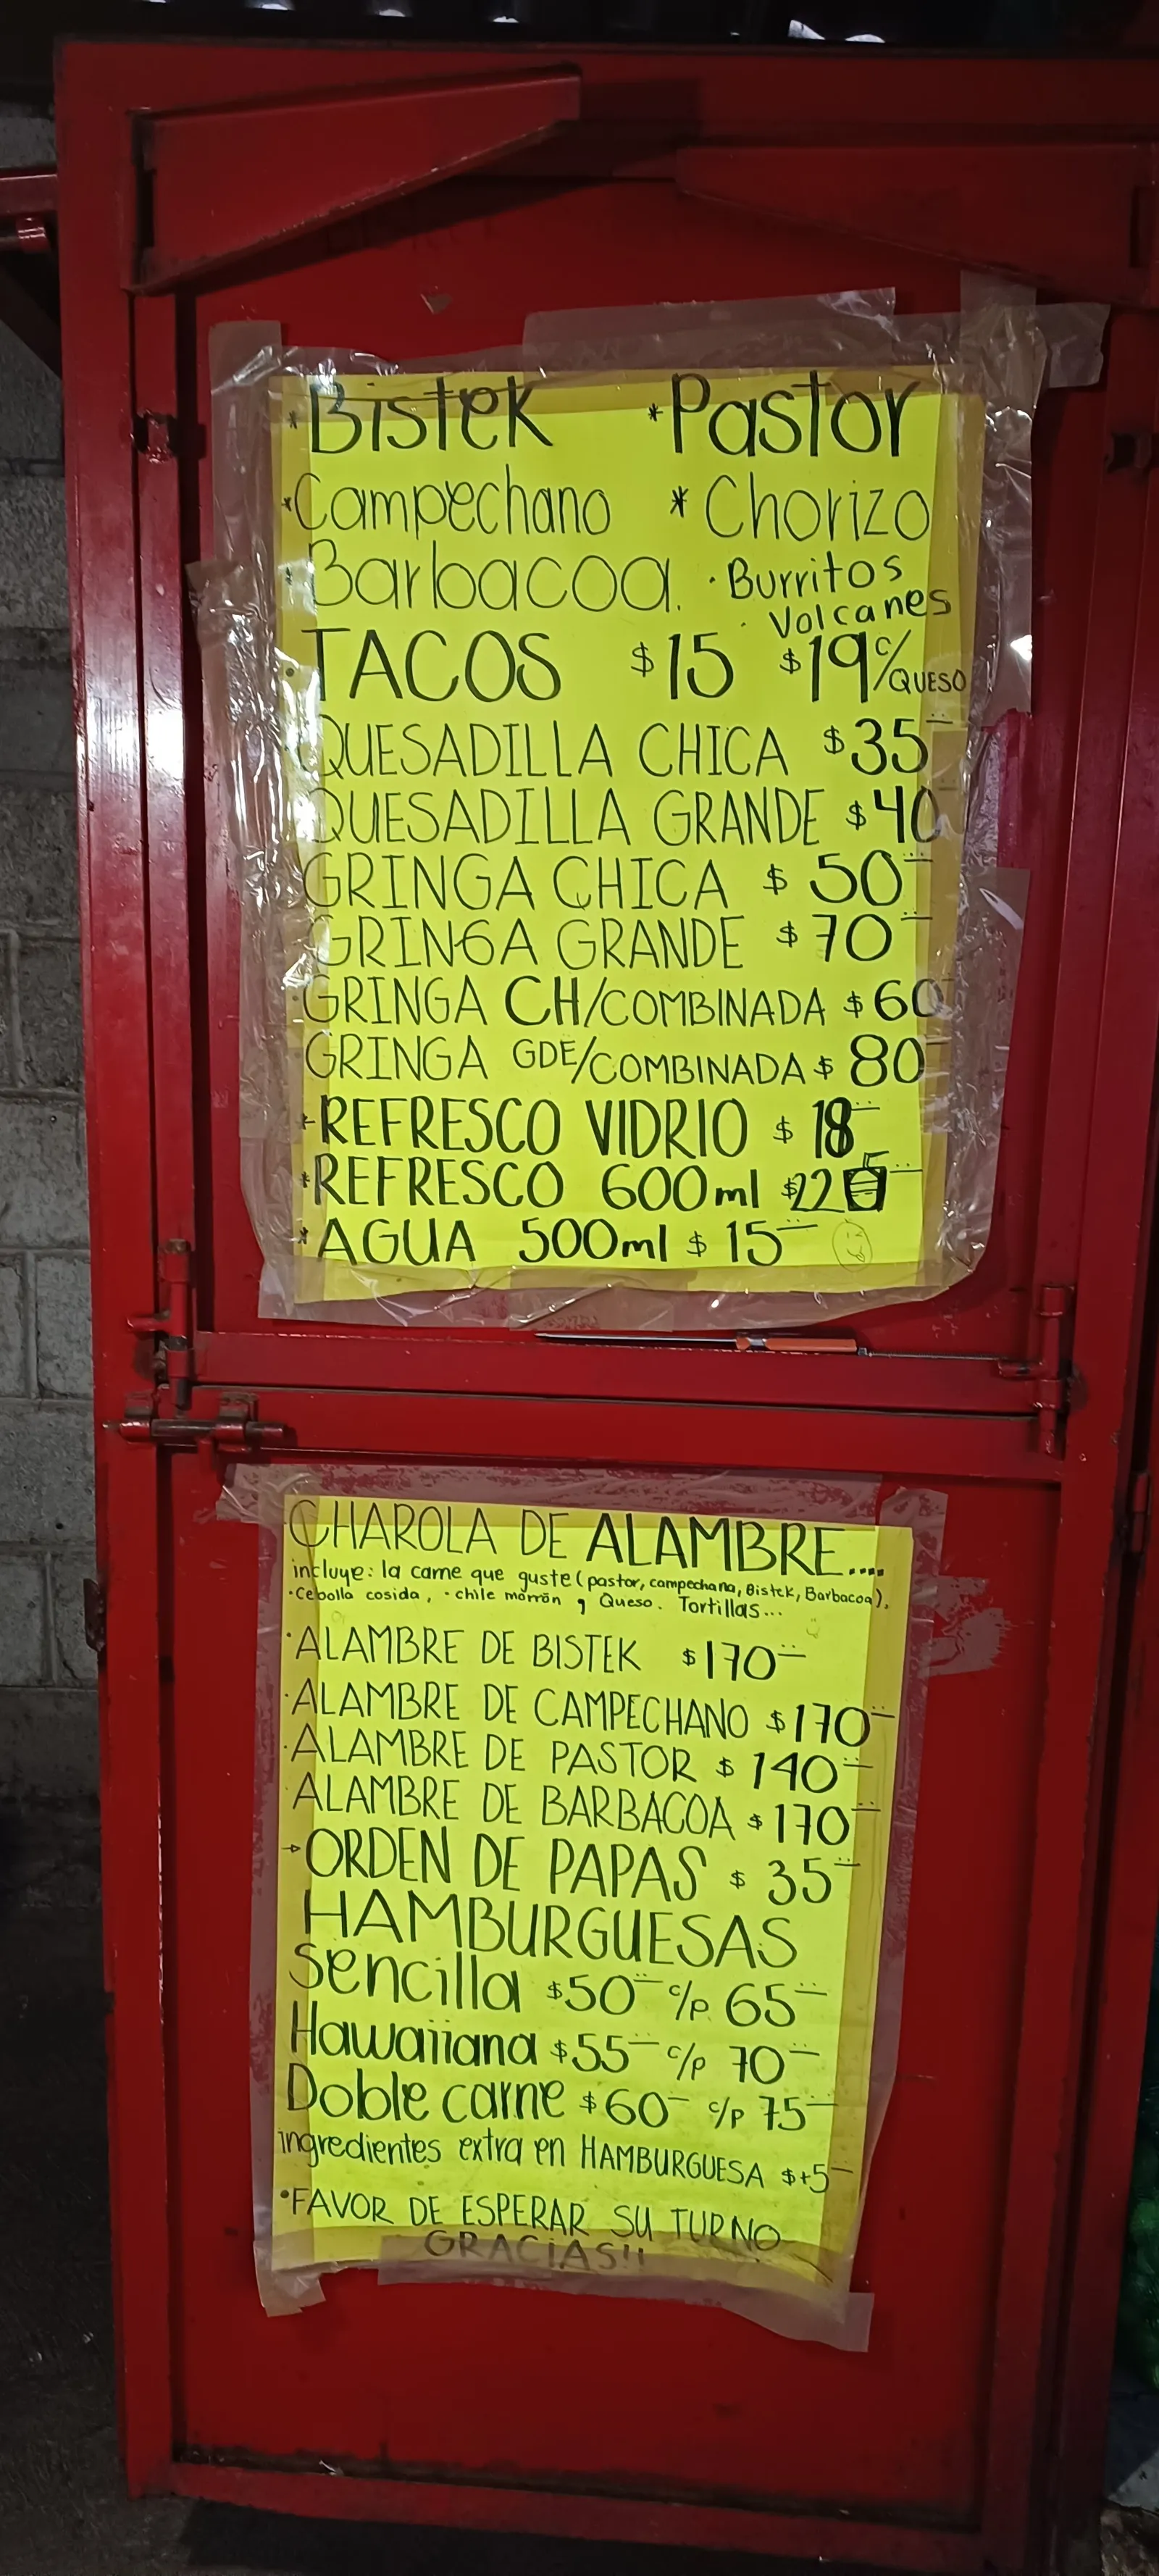 *Bistek *Pastor
*Campechano *Chorizo
*Barbacoa. ·Burritos
·Volcanes
·TACOS $15 $19 c/QUESO
QUESADILLA CHICA $35
QUESADILLA GRANDE $40
GRINGA CHICA $50
GRINGA GRANDE $70
GRINGA CH/COMBINADA $60
GRINGA GDE/COMBINADA $80
*REFRESCO VIDRIO $18
*REFRESCO 600ml $22
*AGUA 500ml $15
CHAROLA DE ALAMBRE....
incluye: la carne que guste (pastor, campechana, Bistek, Barbacoa),
·Cebolla cosida, ·chile morrón y Queso. Tortillas...
·ALAMBRE DE BISTEK $170
·ALAMBRE DE CAMPECHANO $170
·ALAMBRE DE PASTOR $140
ALAMBRE DE BARBACOA $170
→ORDEN DE PAPAS $35
HAMBURGUESAS
Sencilla $50 c/p 65
Hawaiiana $55 c/p 70
Doble carne $60 c/p 75
ingredientes extra en HAMBURGUESA $+5
·FAVOR DE ESPERAR SU TURNO
GRACIAS!!